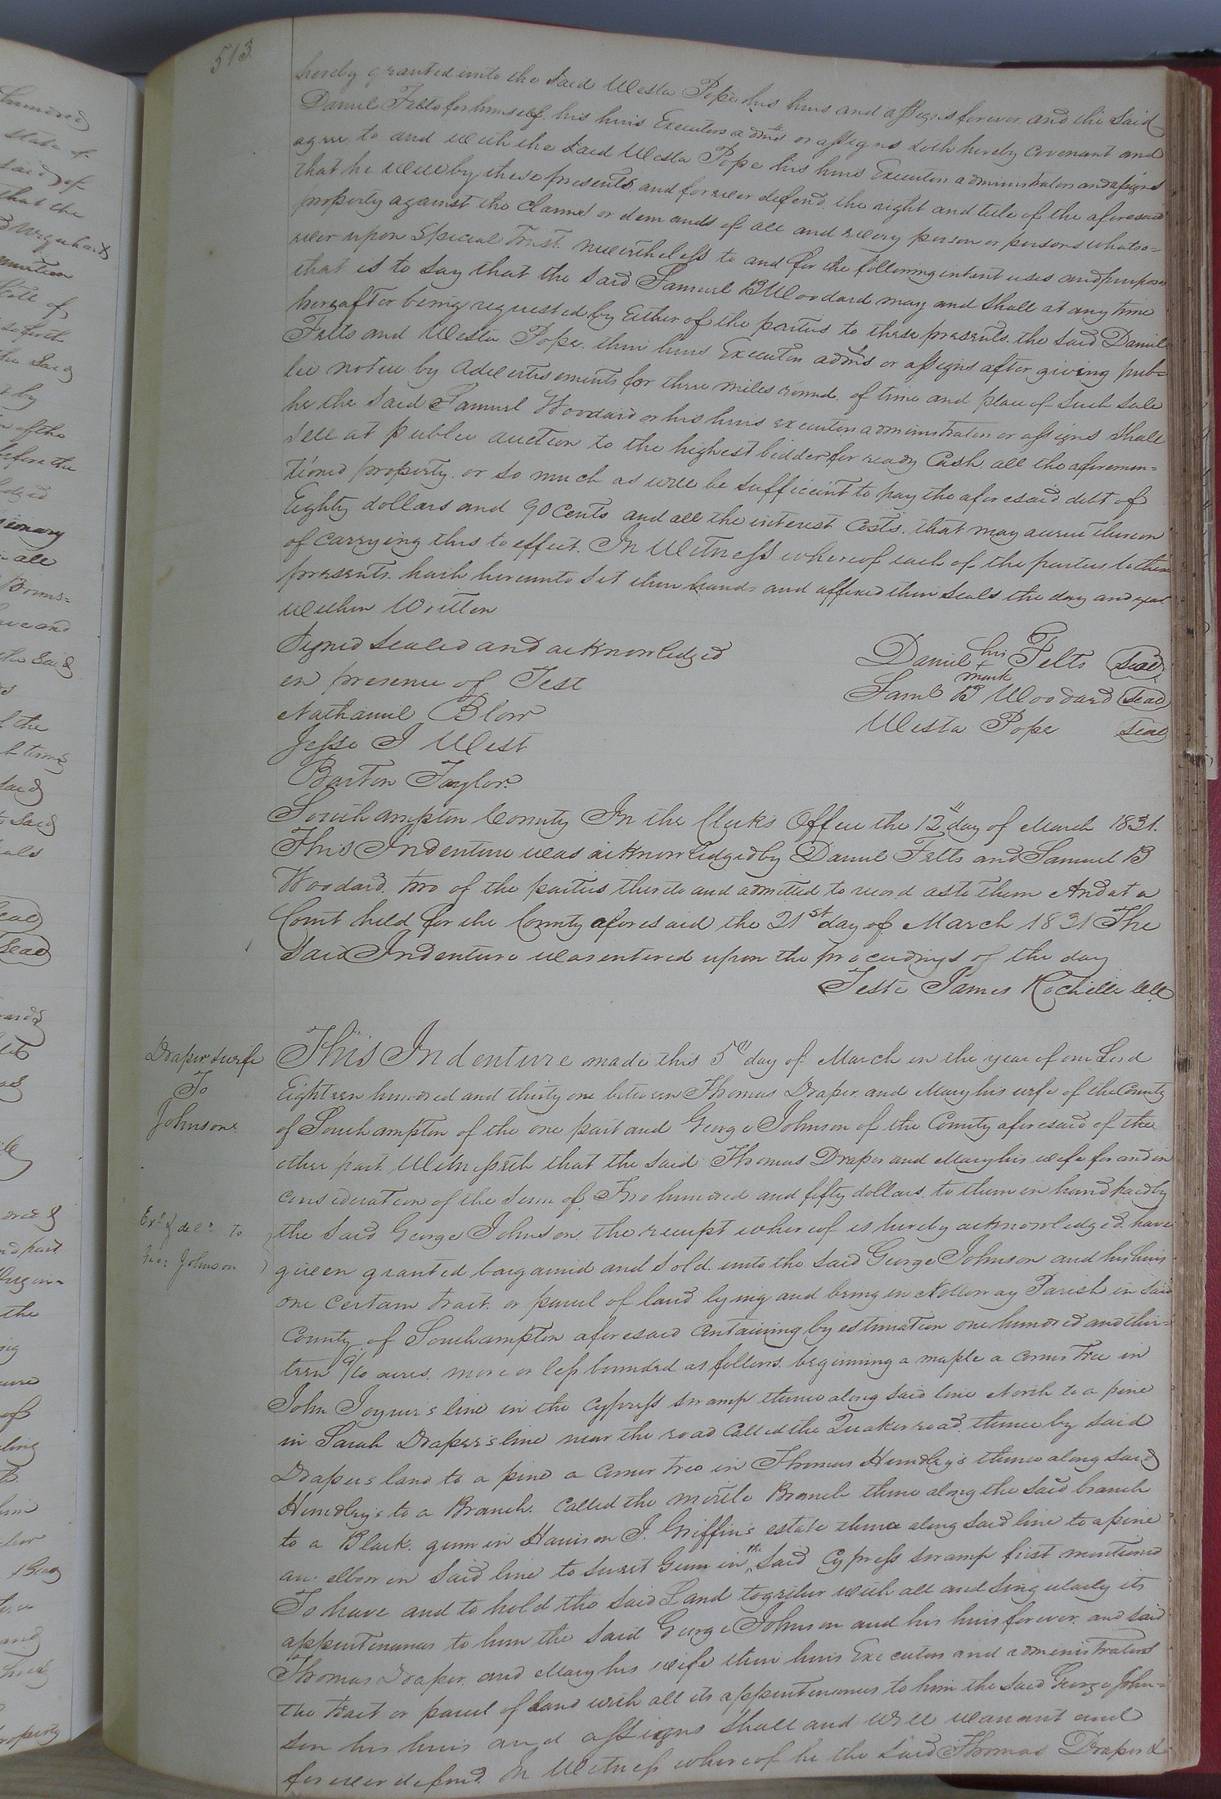 513
hereby granted unto the said Westa Pope his heirs and assigns forever and the said
Daniel Felts for himself his heirs Executors admrs or assigns doth hereby Covenant and
agree to and with the said Westa Pope his heirs Executors administrators and assigns
that he will by these presents and forever defend the right and title of the aforesaid
property against the claims or demands of all and every person or persons whatso=
ever upon Special Trust nevertheless to and for the following intent uses and purposes
that is to say that the said Samuel B Woodard may and shall at any time
hereafter being requested by Either of the parties to these presents the said Daniel
Felts and Westa Pope their heirs Executors admrs or assigns after giving pub=
lic notice by Advertisements for three miles round, of time and place of such sale
he the said Samuel Woodard or his heirs executors administrators or assigns shall
sell at public auction to the highest bidder for ready Cash all the aforemen=
tioned property or so much as will be sufficient to pay the aforesaid debt of
Eighty dollars and 90 Cents and all the interest Costs, that may accrue thereon
of carrying this to effect. In Witness whereof each of the parties to these
presents hath hereunto set their hands and affixed their seals the day and year
within Written
Signed Sealed and acknowledged
in presence of Test
Nathaniel Blow
Jesse J West
Barton Taylor
Daniel his + mark Felts (Seal)
Saml B Woodard (Seal)
Westa Pope (Seal)
Southampton County In the Clerks Office the 12th day of March 1831.
This Indenture was acknowledged by Daniel Felts and Samuel B
Woodard, two of the parties thereto and admitted to record as to them And at a
Court held for the County aforesaid the 21st day of March 1831 The
said Indenture was entered upon the proceedings of the day
Teste James Rochelle Clk
Draper & wife
To
Johnson
Exd & deld to
Geo: Johnson
This Indenture made this 5th day of March in the year of our Lord
Eighteen hundred and thirty one between Thomas Draper and Mary his wife of the County
of Southampton of the one part and George Johnson of the County aforesaid of the
other part Witnesseth that the said Thomas Draper and Mary his wife for and in
consideration of the sum of Two hundred and fifty dollars, to them in hand paid by
the said George Johnson, the receipt whereof is hereby acknowledged, have
given granted bargained and sold unto the said George Johnson and his heirs
one certain tract or parcel of land lying and being in Nottoway Parish in said
County of Southampton aforesaid containing by estimation one hundred and thir=
teen 9/10 acres, more or less bounded as follows, beginning a maple a corner tree in
John Joyner's line in the Cypress swamp thence along said line North to a pine
in Sarah Draper's line near the road called the Quaker road, thence by said
Drapers land to a pine a corner tree in Thomas Hendley's thence along said
Hendley's to a Branch, called the mirtle Branch thence along the said branch
to a Black gum in Harrison J. Griffin's estate thence along said line to a pine
an elbow in said line to sweet Gum in the said Cypress swamp first mentioned
To have and to hold the said Land together with all and singularly its
appurtenances to him the said George Johnson and his heirs forever, and said
Thomas Draper and Mary his wife their heirs Executors and administrators
the tract or parcel of land with all its appurtenances to him the said George John=
son his heirs and assigns shall and will warrant and
forever defend. In Witness whereof he the said Thomas Draper &